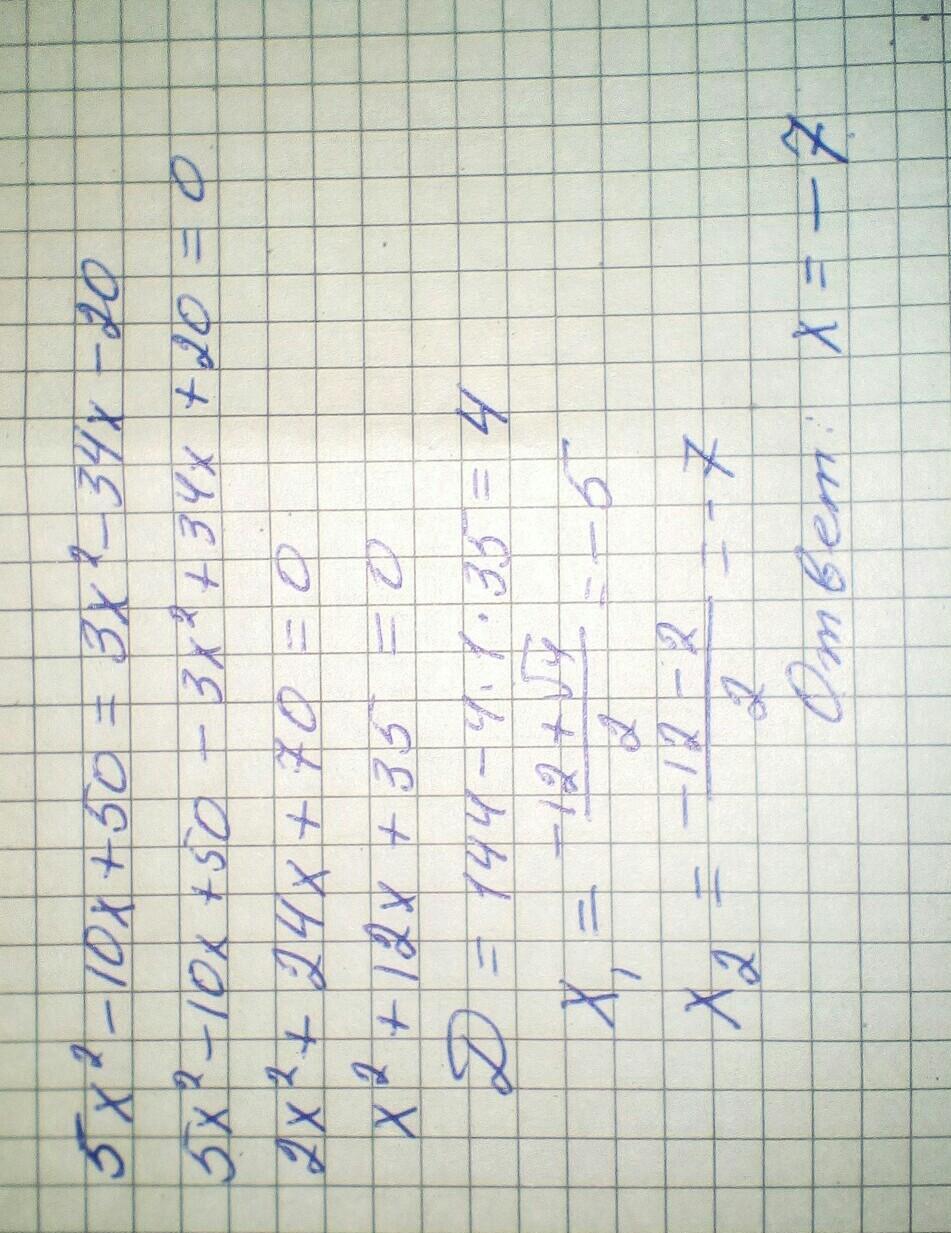 5x² - 10x + 50 = 3x² - 34x - 20
5x² - 10x + 50 - 3x² + 34x + 20 = 0
2x² + 24x + 70 = 0
x² + 12x + 35 = 0
D = 144 - 4 · 1 · 35 = 4
x₁ = (-12 + √4)/2 = -5
x₂ = (-12 - 2)/2 = -7
Ответ: x = -7